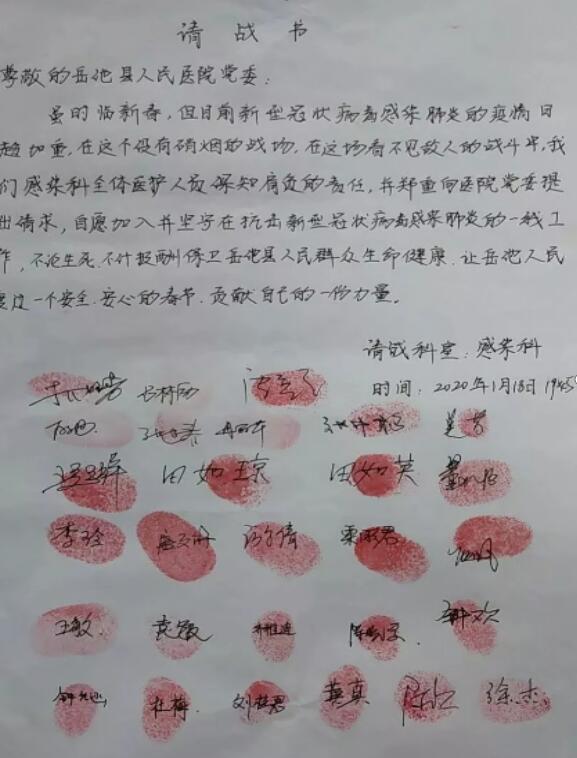 请战书
尊敬的岳池县人民医院党委:
虽时临新春,但目前新型冠状病毒感染肺炎的疫情日
趋加重,在这个没有硝烟的战场,在这场看不见敌人的战斗中,我
们感染科全体医护人员深知肩负的责任,并郑重向医院党委提
出请求,自愿加入并坚守在抗击新型冠状病毒感染肺炎的一线工
作,不论生死,不计报酬保卫岳池县人民群众生命健康.让岳池人民
度过一个安全.安心的春节.贡献自己的一份力量。
请战科室:感染科
时间:2020年1月18日19:45
田如琼 田如英
李玲
王敏
杜梅 刘 真 徐杰